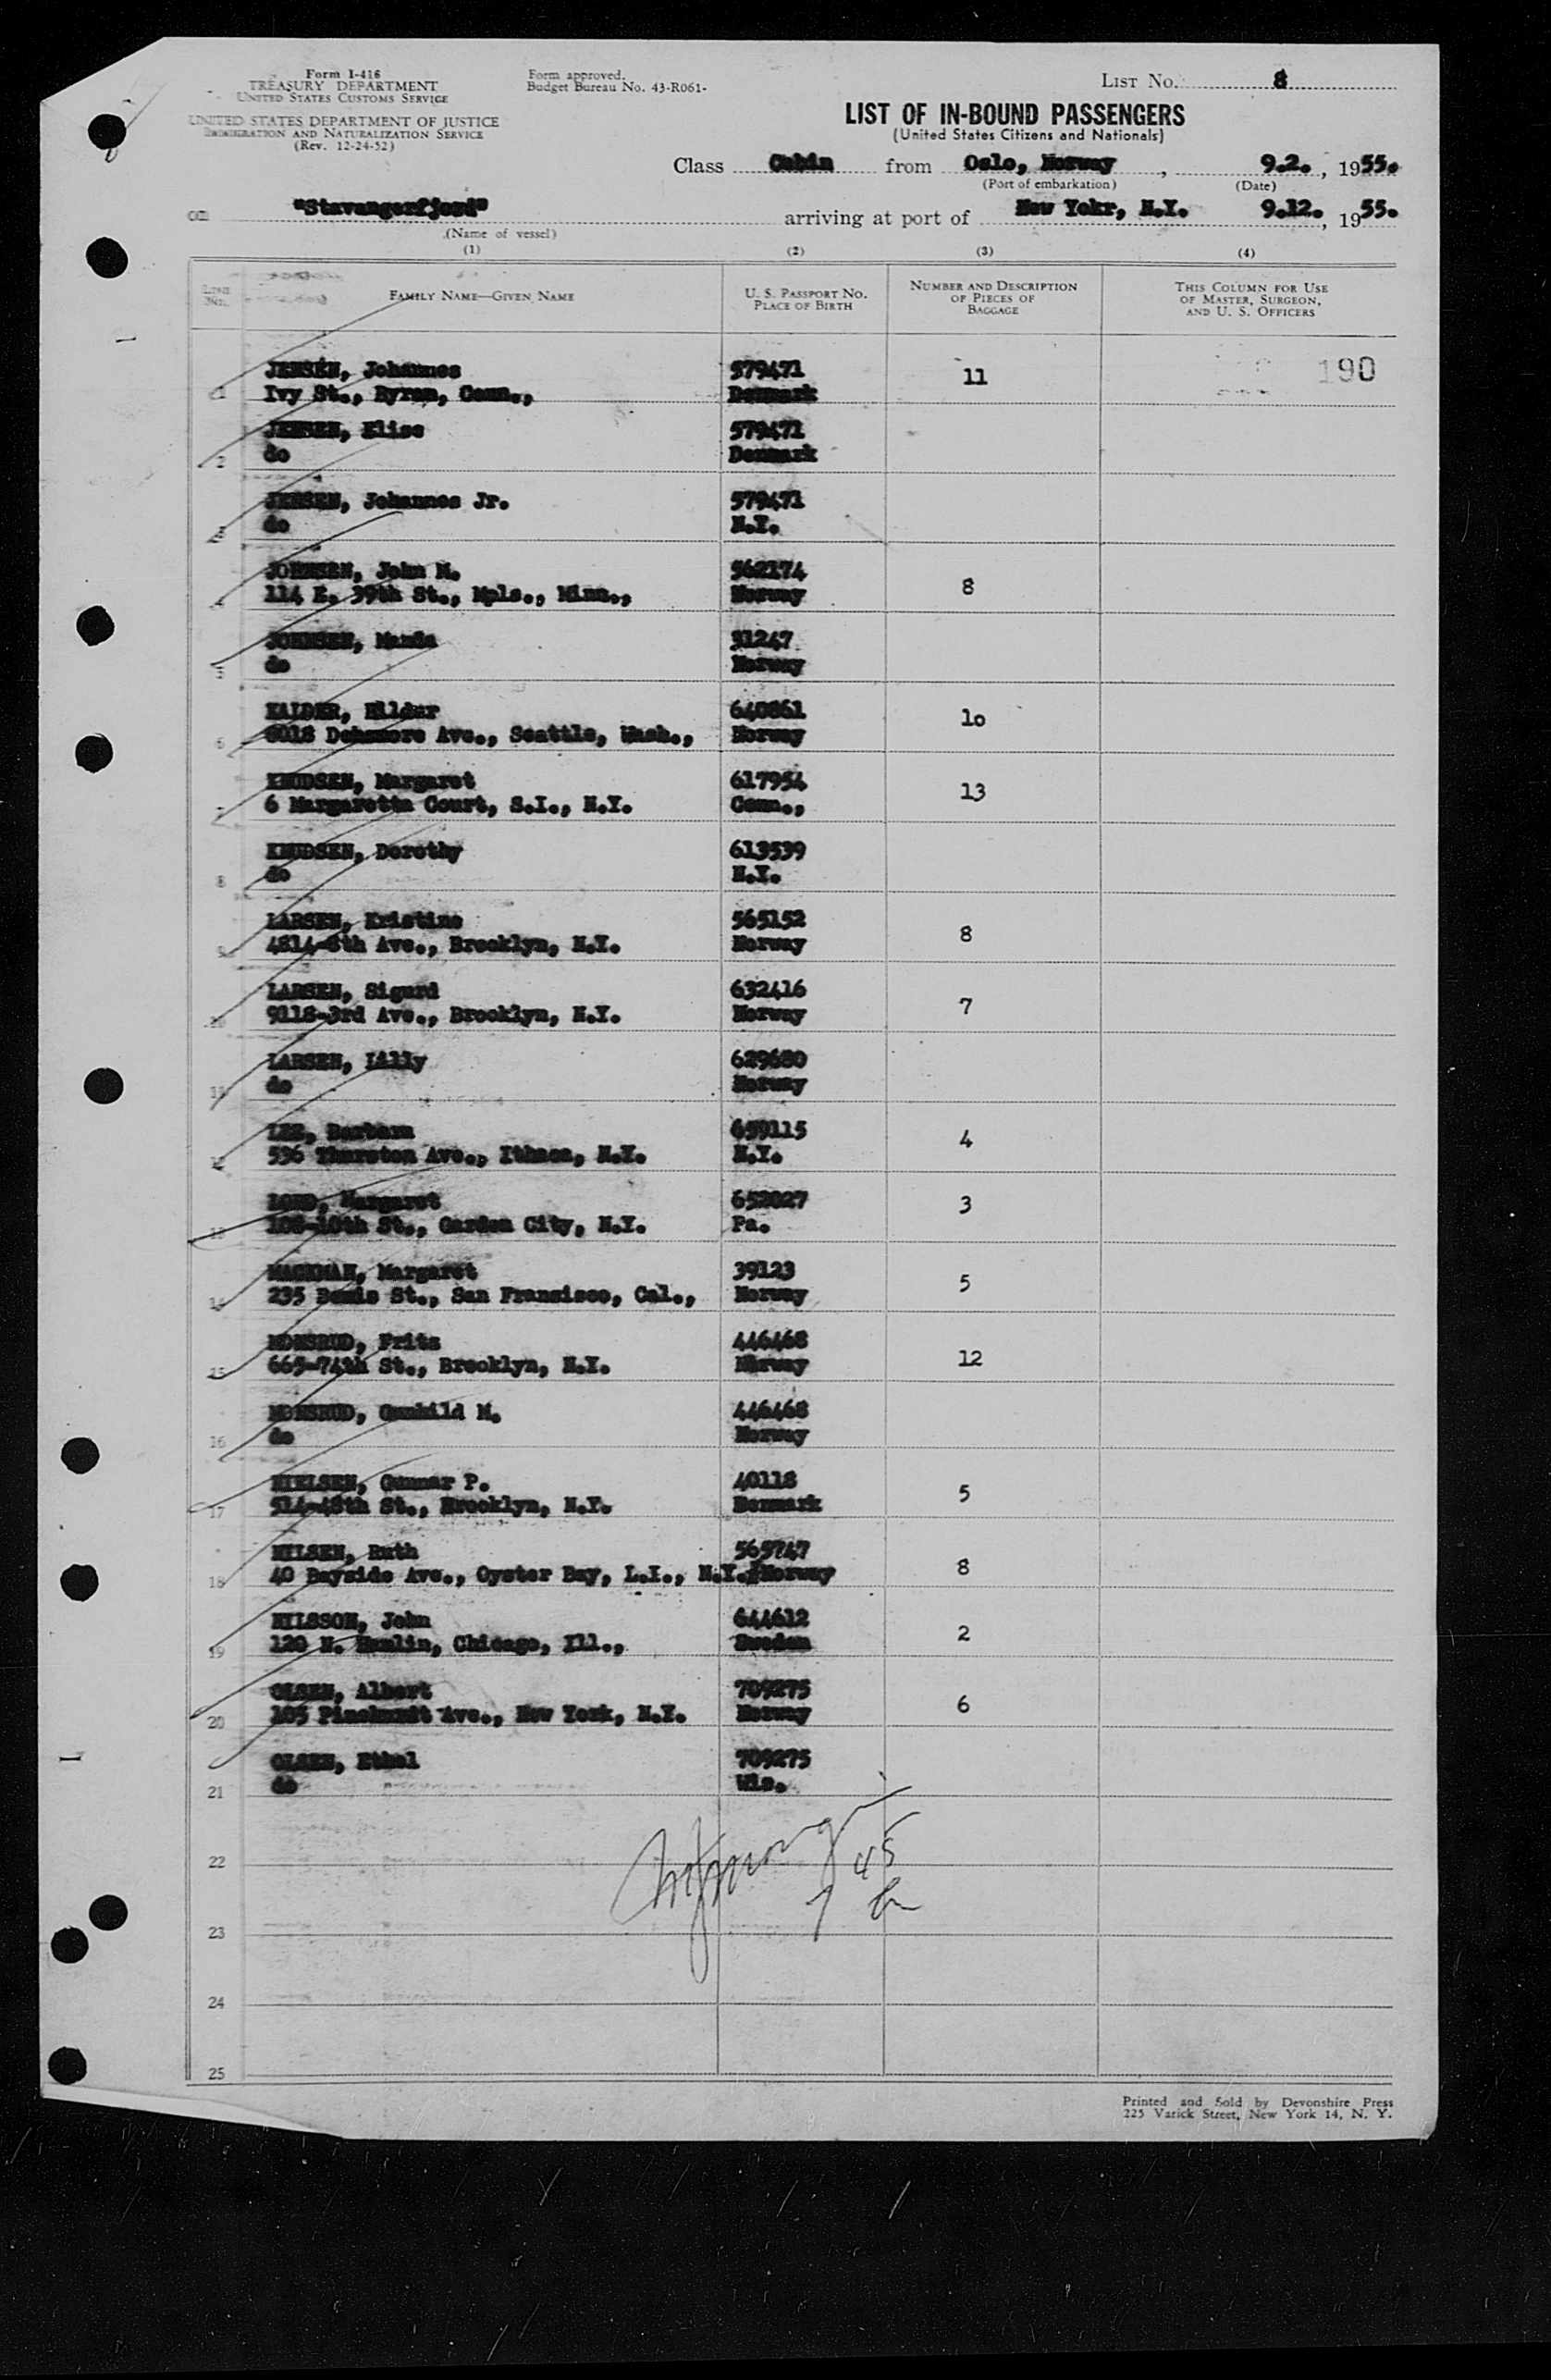 Form I-416
TREASURY DEPARTMENT
UNITED STATES CUSTOMS SERVICE
UNITED STATES DEPARTMENT OF JUSTICE
IMMIGRATION AND NATURALIZATION SERVICE
(Rev. 12-24-52)
Form approved.
Budget Bureau No. 43-R061-
LIST No. 8
LIST OF IN-BOUND PASSENGERS
(United States Citizens and Nationals)
Class Cabin from Oslo, Norway, 9.2., 1955.
(Port of embarkation) (Date)
on "Stavangerfjord" arriving at port of New Yokr, N.Y. 9.12., 1955.
(Name of vessel)
(1) (2) (3) (4)
LINE No. FAMILY NAME—GIVEN NAME U. S. PASSPORT No. PLACE OF BIRTH NUMBER AND DESCRIPTION OF PIECES OF BAGGAGE THIS COLUMN FOR USE OF MASTER, SURGEON, AND U. S. OFFICERS
JENSEN, Johannes 579471 11 190
1 Ivy St., Byram, Conn., Denmark
JENSEN, Elise 579471
2 do Denmark
JENSEN, Johannes Jr. 579471
3 do N.Y.
JOHNSEN, John M. 562174 8
4 114 E. 39th St., Mpls., Minn., Norway
JOHNSEN, 31247
5 do Norway
Hildur 640861 10
6 Ave., Seattle, Wash., Norway
KNUDSEN, Margaret 617954 13
7 6 Margaretta Court, S.I., N.Y. Conn.,
KNUDSEN, Dorothy 613539
8 do N.Y.
LARSEN, Kristine 565152 8
9 4814-8th Ave., Brooklyn, N.Y. Norway
LARSEN, Sigurd 632416 7
10 9118-3rd Ave., Brooklyn, N.Y. Norway
LARSEN, Lilly 629680
11 do Norway
LEE, Barbara 659115 4
12 536 Thurston Ave., Ithaca, N.Y. N.Y.
LORD, Margaret 652027 3
13 108-10th St., Garden City, N.Y. Pa.
MACKMAN, Margaret 39123 5
14 235 Bemis St., San Fransisco, Cal., Norway
MONSRUD, Frits 446468 12
15 665-74th St., Brooklyn, N.Y. Norway
MONSRUD, Gunhild M. 446468
16 do Norway
NIELSEN, Gunnar P. 40118 5
17 514-48th St., Brooklyn, N.Y. Denmark
NILSEN, Ruth 565747 8
18 40 Bayside Ave., Oyster Bay, L.I., N.Y. Norway
NILSSON, John 644612 2
19 120 N. Hamlin, Chicago, Ill., Sweden
OLSEN, Albert 709275 6
20 105 Pinehurst Ave., New York, N.Y. Norway
OLSEN, Ethel 709275
21 do Wis.
22 45
23
24
25
Printed and Sold by Devonshire Press
225 Varick Street, New York 14, N. Y.